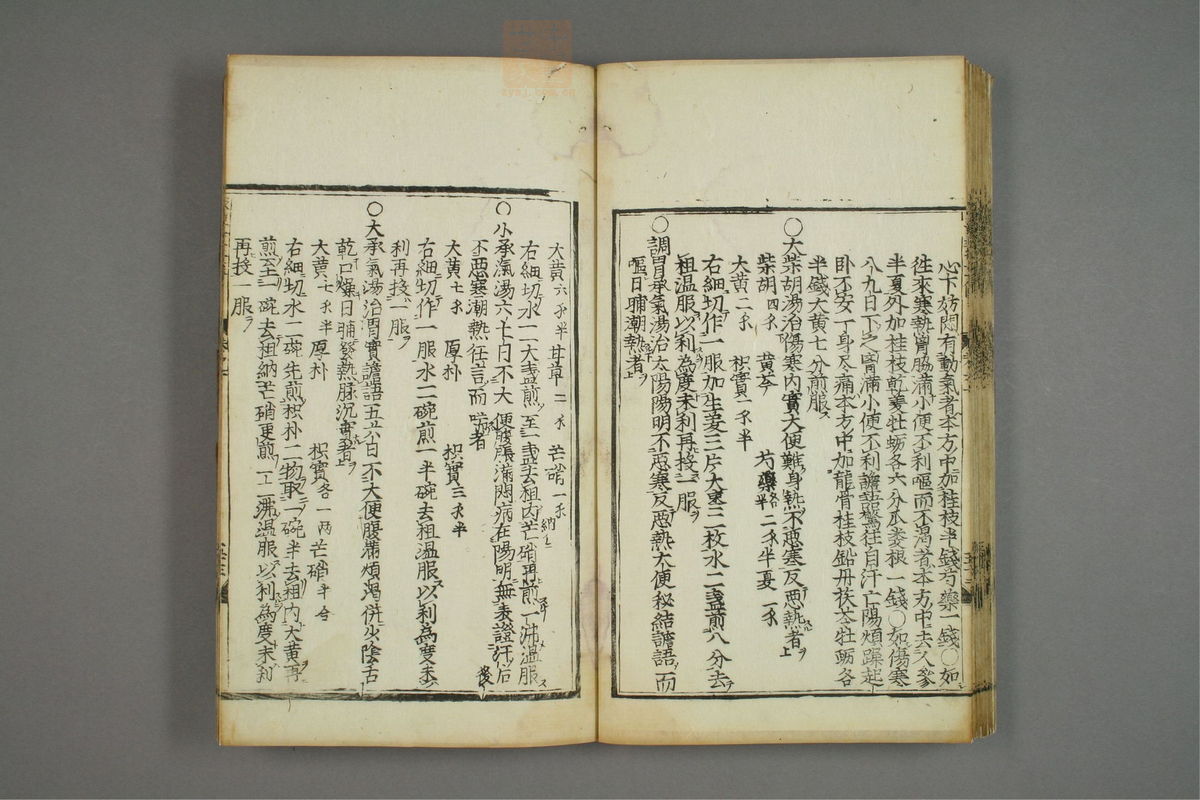 心下妨悶有動氣者本方中加桂枝半錢芍藥一錢〇如
徃來寒熱胷脇滿小便不利嘔而不渴者本方中去人參
半夏外加桂枝乾姜牡蛎各六分瓜蔞根一錢〇如傷寒
八九日下之胷滿小便不利譫語驚狂自汗亡陽煩躁起
卧不安一身尽痛本方中加龍骨桂枝鉛丹茯苓牡蛎各
半錢大黄七分煎服
〇大柴胡湯治傷寒内實大便難身熱不惡寒反惡熱者
柴胡四 黄芩 芍藥各二 半半夏一
大黄二 枳實一 半
右細切作一服加生姜三片大棗二枚水二盞煎八分去
柤温服以利為度未利再投一服
〇調胃承氣湯治太陽陽明不惡寒反惡熱大便秘結譫語而
嘔日晡潮熱者
大黄六 半甘草二 芒硝一
右細切水一大盞煎至一盞去柤内芒硝再煎一沸温服
〇小承氣湯六七日不大便腹脹滿悶病在陽明無表證汗后
不惡寒潮熱狂言而喘者
大黄七 厚朴 枳實三 半
右細切作一服水二碗煎一半碗去柤温服以利為度未
利再投一服
〇大承氣湯治胃實譫語五六日不大便腹滿煩渴併少陰舌
乾口燥日晡發熱脉沉實者
大黄七 半厚朴 枳實各一兩芒硝半合
右細切水二碗先煎枳朴二物取一碗半去柤内大黄再
煎至一碗去柤納芒硝更煎一二沸温服以利為度未利
再投一服